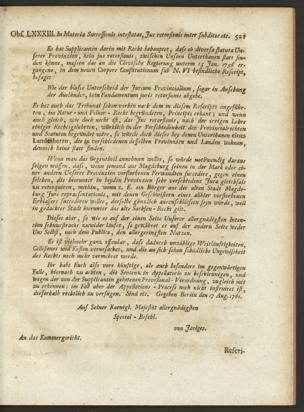 Obs. LXXXIII. In Materia Successionis intestatae, Jus retorsionis inter subditos etc. 521
Es hat Supplicantin darin mit Recht behauptet, daß ob diversa statuta Unserer
Provintzien, kein jus retorsionis, zwischen Unsern Unterthanen statt finden
könne, massen das an die Clevische Regierung unterm 15 Jan. 1756 ergangene,
in dem neuen Corpore Constitutionum sub N. VI befindliche Rescript,
besaget:
Wie der blosse Unterscheid der Jurium Provincialium, sogar in Ansehung
der Ausländer, kein Fundamentum juris retorsionis abgebe.
Es hat auch das Tribunal sehon vorhin nach dem in diesem Rescripto angeführten,
im Natur- und Völker-Recht begründeten, Principio erkant; und wenn
auch gleich, wie doch nicht ist, das Jus retorsionis, nach der irrigen Lehre
einiger Rechtsgelehrten, würklich in der Verschiedenheit der Provincialrechten
und Statuten begründet wäre, so würde doch dieses bey denen Unterthanen eines
Landesherren, die zu verschiedenen desselben Provintzen und Landen wohnen,
dennoch keine statt finden.
Wenn man das Gegentheil annehmen wollte, so würde nothwendig daraus
folgen müssen, daß, wenn jemand aus Magdeburg seinem in der Mark oder einer
andern Unserer Provintzien verstorbenen Verwandten succedire, gegen einen
solchen, als derer in beyden Provintzen sehr verschiedene Jura gleichfals
zu retorquiren, mithin, wenn z. E. ein Bürger aus der alten Stadt Magdeburg
Jure repraesentationis, mit denen Geschwistern eines allhier verstorbenen
Erblassers succediren wollte, derselbe gäntzlich auszuschliessen seyn würde, weil
in gedachter Stadt hierunter das alte Sachsen-Recht gilt.
Dieses aber, so wie es auf der einen Seite Unserer allergnädigsten Intention
schnurstracks zuwider läufet, so gewähret es auf der andern Seite weder
Uns Selbst, noch dem Publico, den allergeringsten Nutzen.
Es ist vielmehr gantz offenbar, daß dadurch unzählige Weitläuftigkeiten,
Collisiones und Kosten verursachet, und die an sich schon schädliche Ungewißheit
des Rechts noch mehr vermehret werde.
Ihr habt Euch also vors künftige, als auch besonders im gegenwärtigen
Falle, hiernach zu achten, die Sententz in Appellatorio zu beschleunigen, und
wegen der von der Supplicantin gebetenen Provisional-Verordnung, zugleich mit
zu erkennen; im Fall aber der Appellations-Process noch nicht instruiret ist,
diesterhalb rechtlich zu verfügen. Sind etc. Gegeben Berlin den 17 Aug. 1761.
Auf Seiner Koenigl. Majestät allergnädigsten
Special-Befehl.
von Jariges.
An das Kammergericht.
Rescri-